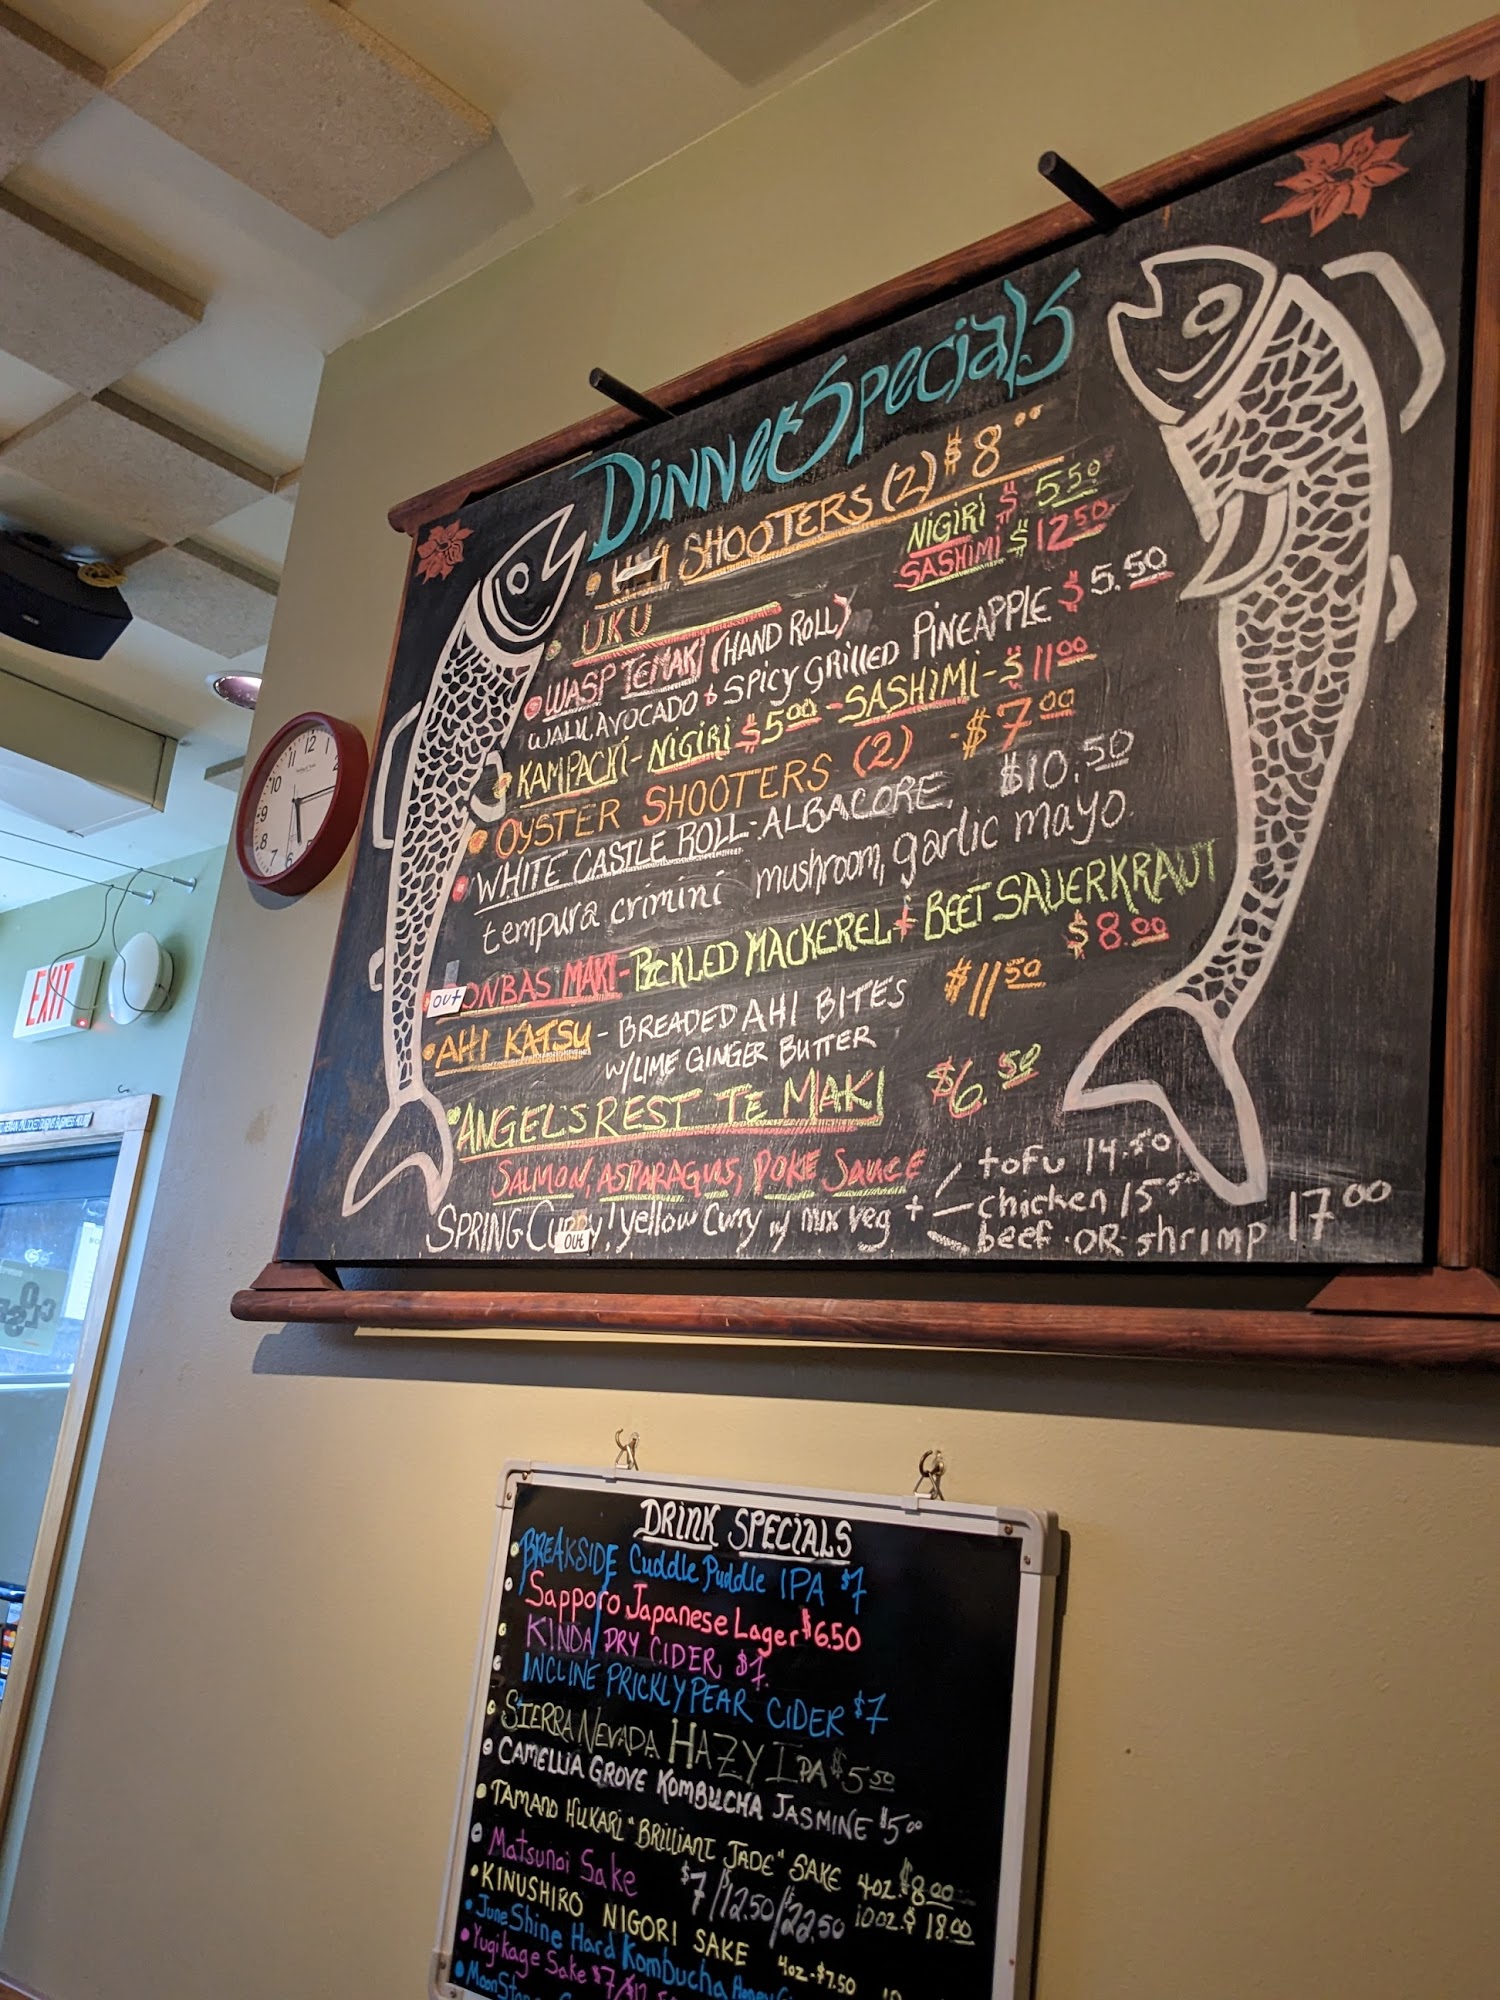 Dinner Specials
SHOOTERS (2) $8⁰⁰
UKU NIGIRI $5⁵⁰
SASHIMI $12⁵⁰
WASP TEMAKI (HAND ROLL)
WALU, AVOCADO + SPICY GRILLED PINEAPPLE $5.50
KAMPACKI - NIGIRI $5⁰⁰ - SASHIMI - $11⁰⁰
OYSTER SHOOTERS (2) - $7⁰⁰
WHITE CASTLE ROLL - ALBACORE, $10.50
tempura crimini mushroom, garlic mayo
out ONBAS MAKI - PICKLED MACKEREL + BEET SAUERKRAUT
$8.00
AHI KATSU - BREADED AHI BITES $11⁵⁰
W/LIME GINGER BUTTER
ANGEL'S REST TEMAKI $6.50
SALMON, ASPARAGUS, POKE SAUCE
SPRING Curry! yellow curry w/ mix veg +
out
tofu 14.50
chicken 15⁵⁰
beef OR shrimp 17⁰⁰
12
11
10
9
8
7
6
EXIT
DRINK SPECIALS
BREAKSIDE Cuddle Puddle IPA $7
Sapporo Japanese Lager $6.50
KINDA DRY CIDER $7
INCLINE PRICKLY PEAR CIDER $7
SIERRA NEVADA HAZY IPA $5⁵⁰
CAMELLIA GROVE KOMBUCHA JASMINE $5⁰⁰
TAMANO HIKARI "BRILLIANT JADE" SAKE 4oz. $8.00
10oz. $18.00
Matsunoi Sake $7/12.50/22.50
KINUSHIRO NIGORI SAKE 4oz - $7.50
JuneShine Hard Kombucha
Yugikage Sake $7